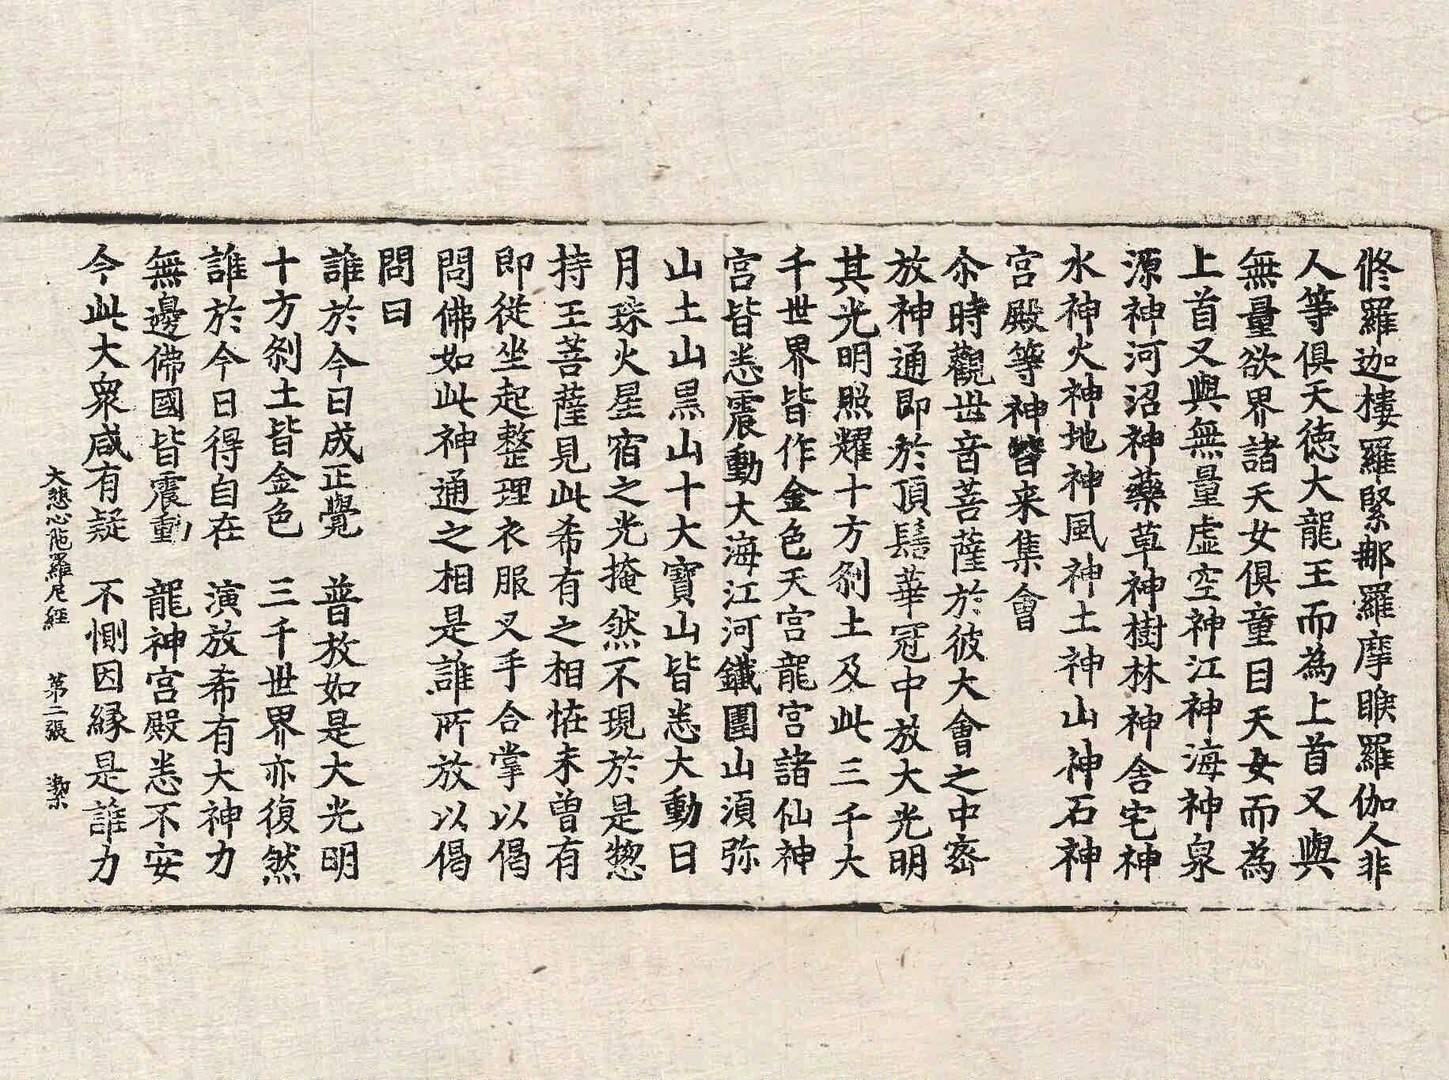 脩羅迦樓羅緊那羅摩睺羅伽人非
人等俱天徳大龍王而為上首又與
無量欲界諸天女俱童目天女而為
上首又與無量虛空神江神海神泉
源神河沼神藥草神樹林神舍宅神
水神火神地神風神土神山神石神
宮殿等神皆来集會
尒時觀世音菩薩於彼大會之中宻
放神通即於頂髻華冠中放大光明
其光明照耀十方刹土及此三千大
千世界皆作金色天宮龍宮諸仙神
宮皆悉震動大海江河鐵圍山湏弥
山土山黒山十大寶山皆悉大動日
月珠火星宿之光掩然不現於是惣
持王菩薩見此希有之相恠未曽有
即從坐起整理衣服叉手合掌以偈
問佛如此神通之相是誰所放以偈
問曰
誰於今日成正覺　普放如是大光明
十方刹土皆金色　三千世界亦復然
誰於今日得自在　演放希有大神力
無邊佛國皆震動　龍神宮殿悉不安
今此大衆咸有疑　不惻因緣是誰力
大悲心陁羅尼經　第二張　潔